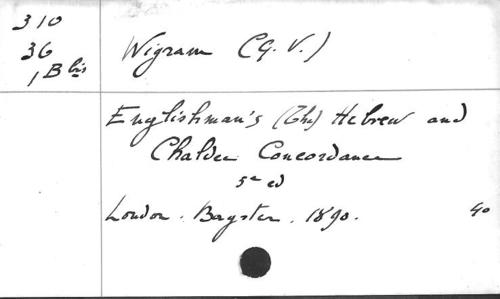 310
36
1 B bis
Wigram (G. V.)
Englishman's (The) Hebrew and
Chaldee Concordance
5e ed
London. Bagster. 1890. 40